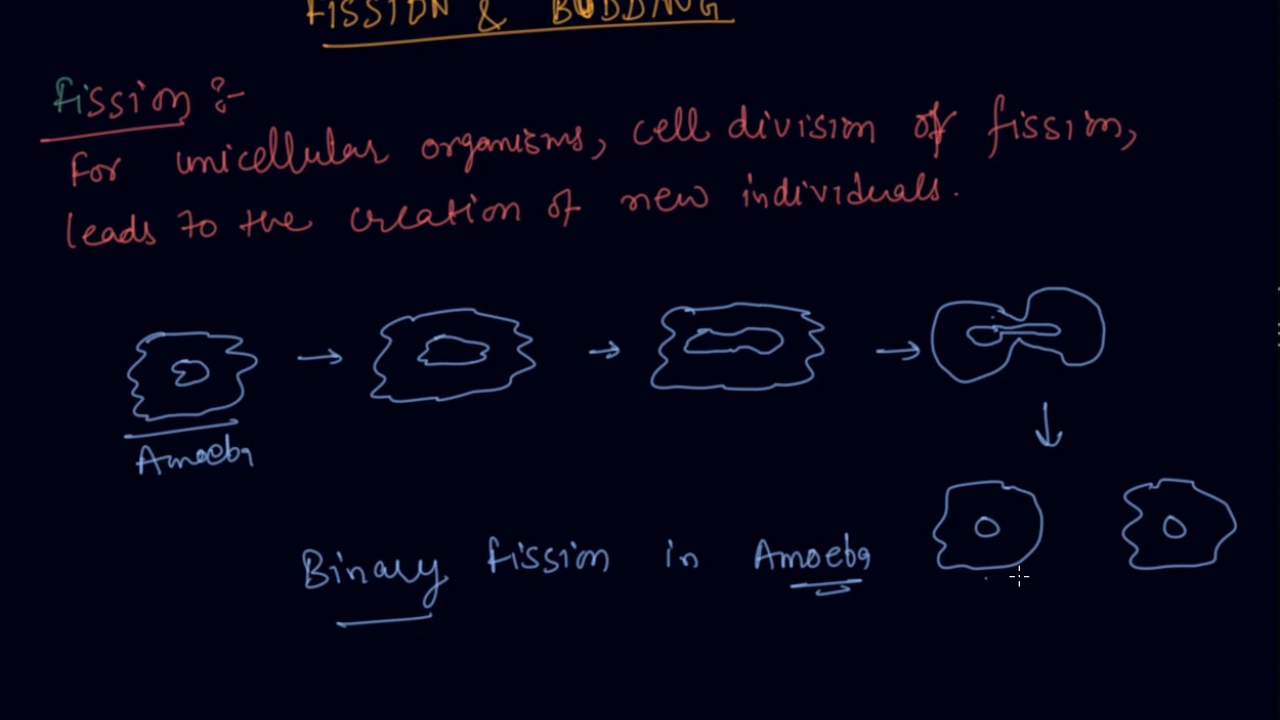 FISSION & BUDDING
Fission :-
For unicellular organisms, cell division of fission,
leads to the creation of new individuals.
Amoeba
Binary fission in Amoeba